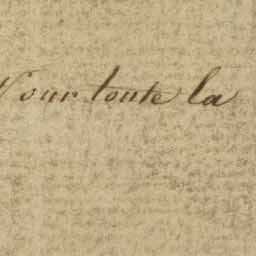 Pour toute la